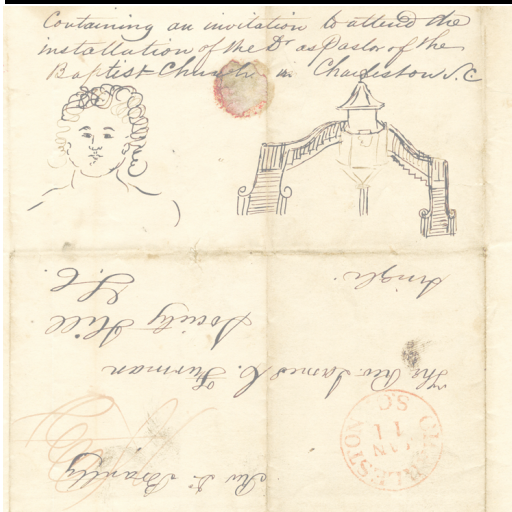 Containing an invitation to attend the
installation of the Dr as Pastor of the
Baptist Church in Charleston S.C
Single
The Rev. James C. Furman
Society Hill
S.C.
Rev Dr Brantly
CHARLESTON
S.C.
JAN
11